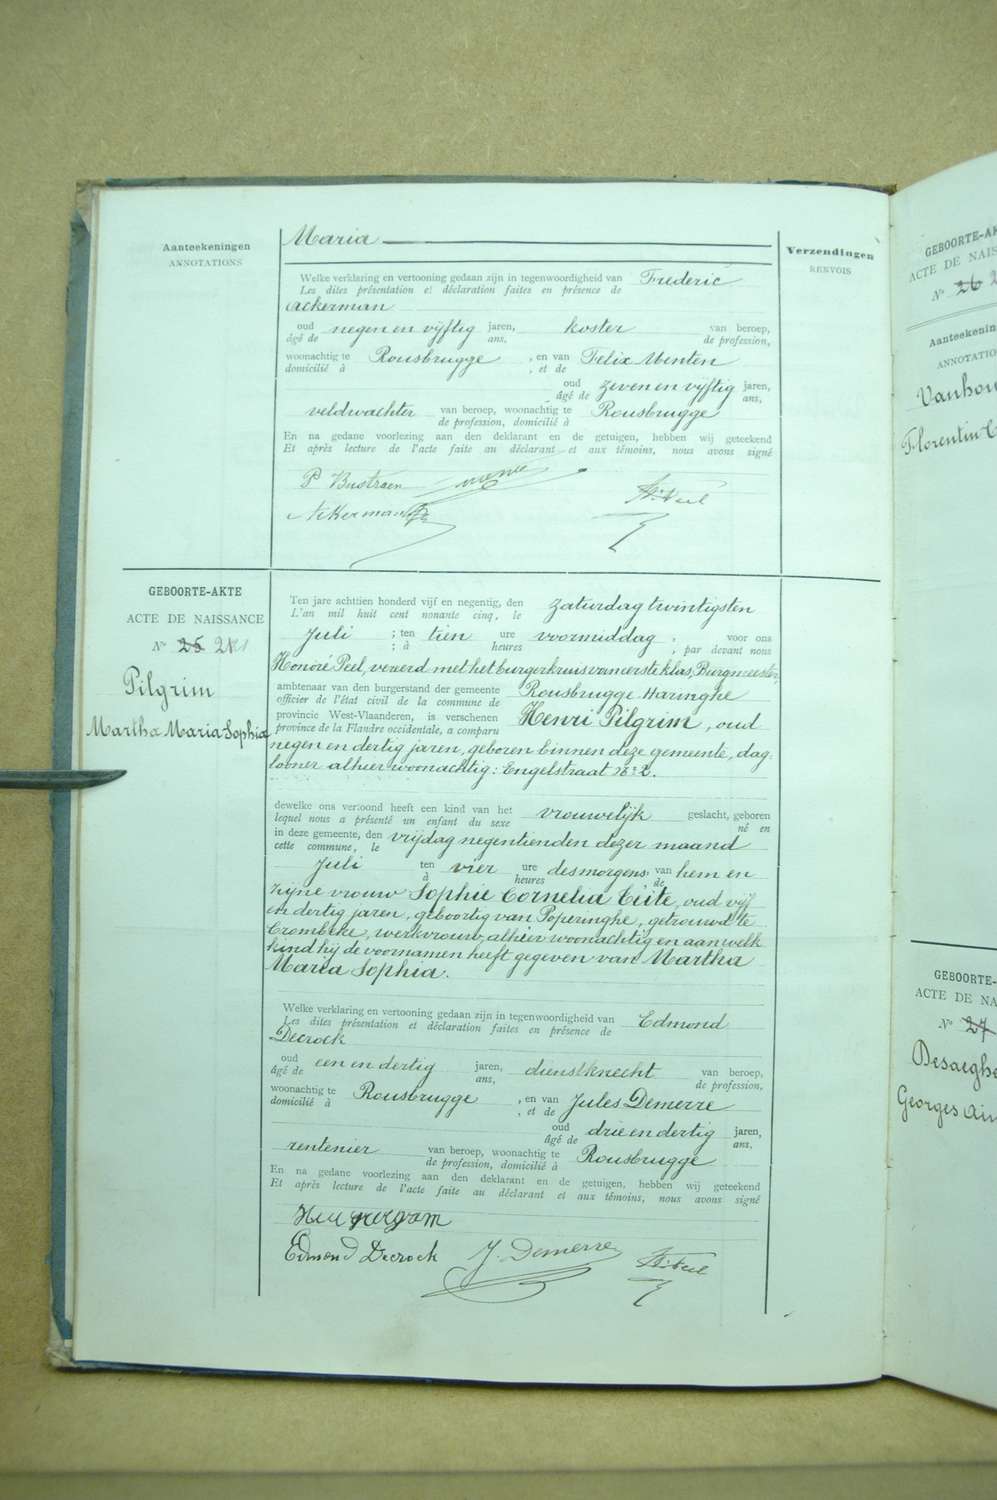 Aanteekeningen
ANNOTATIONS
Maria
Verzendingen
RENVOIS
Welke verklaring en vertooning gedaan zijn in tegenwoordigheid van Frederic
Les dites présentation et déclaration faites en présence de
Ackerman
oud negen en vijftig jaren, koster van beroep,
âgé de ans, de profession,
woonachtig te Rousbrugge , en van Felix Menten
domicilié à , et de
oud zeven en vijftig jaren,
âgé de ans,
veldwachter van beroep, woonachtig te Rousbrugge
de profession, domicilié à
En na gedane voorlezing aan den deklarant en de getuigen, hebben wij geteekend
Et après lecture de l'acte faite au déclarant et aux témoins, nous avons signé
P Bustraen
Ackerman
GEBOORTE-AKTE
ACTE DE NAISSANCE
N° 25
Pilgrim
Martha Maria Sophia
Ten jare achttien honderd vijf en negentig, den zaturdag twintigsten
L'an mil huit cent nonante cinq, le
Juli ; ten tien ure voormiddag , voor ons
; à heures , par devant nous
Honoré Peel, vereerd met het burgerkruis van eerste klas, Burgmeester,
ambtenaar van den burgerstand der gemeente Rousbrugge-Haringhe
officier de l'état civil de la commune de
provincie West-Vlaanderen, is verschenen Henri Pilgrim, oud
province de la Flandre occidentale, a comparu
negen en dertig jaren, geboren binnen deze gemeente, dag-
looner alhier woonachtig: Engelstraat
dewelke ons vertoond heeft een kind van het vrouwelijk geslacht, geboren
lequel nous a présenté un enfant du sexe né en
in deze gemeente, den vrijdag negentienden dezer maand
cette commune, le
Juli ten vier ure des morgens, van hem en
à heures , de
zijne vrouw Sophie Cornelia Ceite, oud vijf
en dertig jaren, geboortig van Poperinghe, getrouwd te
Crombeke, werkvrouw, alhier woonachtig en aan welk
kind hij de voornamen heeft gegeven van Martha
Maria Sophia.
Welke verklaring en vertooning gedaan zijn in tegenwoordigheid van Edmond
Les dites présentation et déclaration faites en présence de
Decrock
oud een en dertig jaren, dienstknecht van beroep,
âgé de ans, de profession,
woonachtig te Rousbrugge , en van Jules Demerre
domicilié à , et de
oud drie en dertig jaren,
âgé de ans,
rentenier van beroep, woonachtig te Rousbrugge
de profession, domicilié à
En na gedane voorlezing aan den deklarant en de getuigen, hebben wij geteekend
Et après lecture de l'acte faite au déclarant et aux témoins, nous avons signé
Edmond Decrock J. Demerre
GEBOORTE-AK
ACTE DE NAIS
N° 26
Aanteekenin
ANNOTATIO
Vanhou
Florentin C
GEBOORTE-
ACTE DE NA
N° 27
Desaeghe
Georges